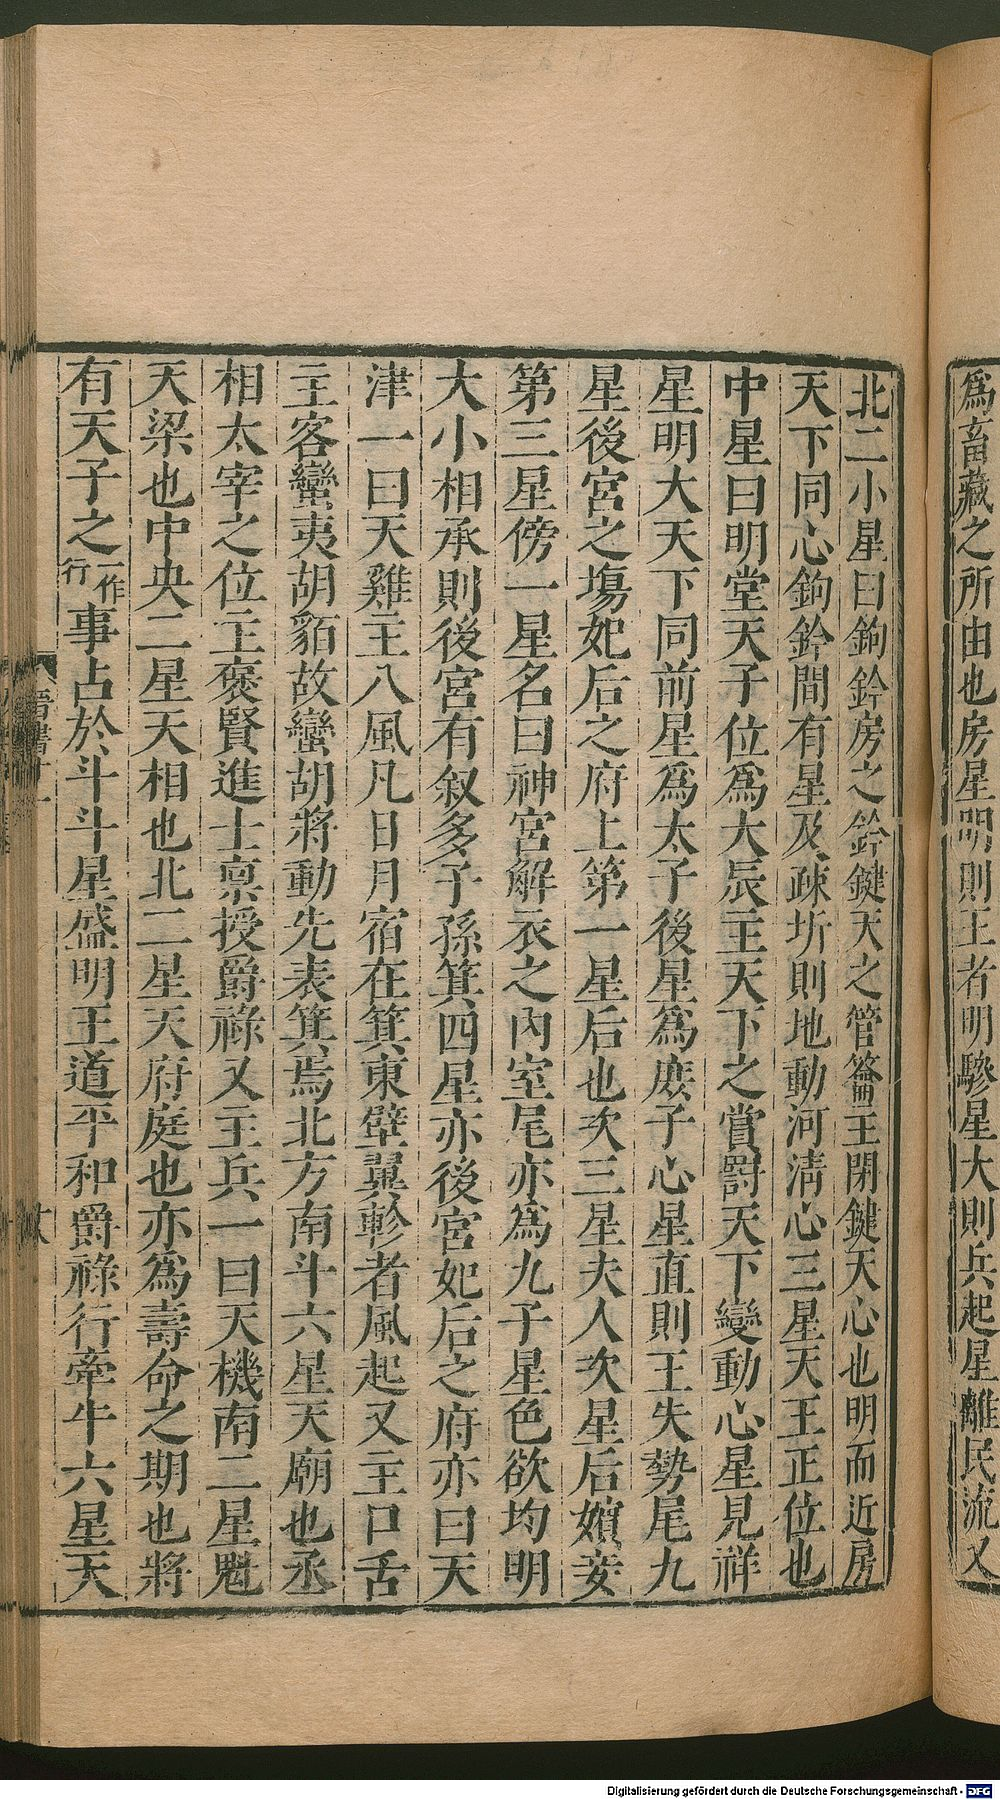 爲畜藏之所由也房星明則王者明驂星大則兵起星離民流又
北二小星曰鉤鈐房之鈐鍵天之管籥王閉鍵天心也明而近房
天下同心鉤鈐間有星及疎坼則地動河淸心三星天王正位也
中星曰明堂天子位爲大辰主天下之賞罰天下變動心星見祥
星明大天下同前星爲太子後星爲庶子心星直則王失勢尾九
星後宮之塲妃后之府上第一星后也次三星夫人次星后嬪妾
第三星傍一星名曰神宮解衣之內室尾亦爲九子星色欲均明
大小相承則後宮有叙多子孫箕四星亦後宮妃后之府亦曰天
津一曰天雞主八風凡日月宿在箕東壁翼軫者風起又主口舌
主客蠻夷胡貊故蠻胡將動先表箕焉北方南斗六星天廟也丞
相太宰之位主褒賢進士禀授爵祿又主兵一曰天機南二星魁
天梁也中央二星天相也北二星天府庭也亦爲壽命之期也將
有天子之一作行事占於斗斗星盛明王道平和爵祿行牽牛六星天
Digitalisierung gefördert durch die Deutsche Forschungsgemeinschaft - DFG